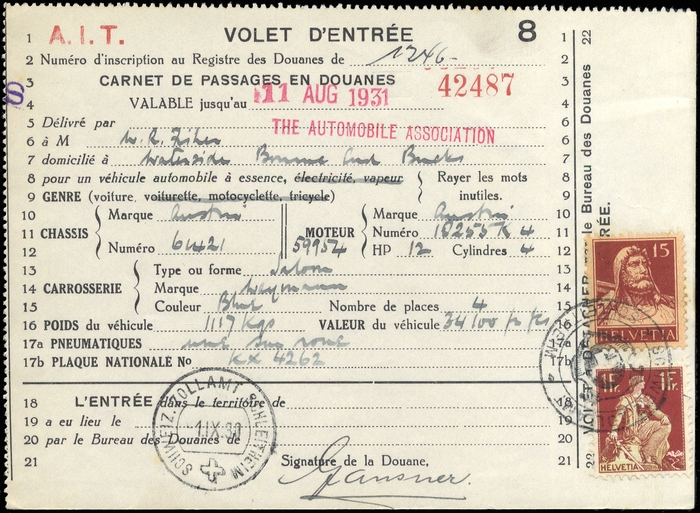 1 A.I.T. VOLET D'ENTRÉE 8 1
2 Numéro d'inscription au Registre des Douanes de 1246- 2
3 CARNET DE PASSAGES EN DOUANES 42487 3
4 VALABLE jusqu'au 11 AUG 1931 4
5 Délivré par THE AUTOMOBILE ASSOCIATION 5
6 à M W. R. Fisher 6
7 domicilié à Waterside Bourne End Bucks 7
8 pour un véhicule automobile à essence, électricité, vapeur Rayer les mots 8
9 GENRE (voiture, voiturette, motocyclette, tricycle) inutiles. 9
10 Marque Austin Marque Austin 10
11 CHASSIS MOTEUR Numéro 11
12 Numéro 61421 59954 HP 12 Cylindres 4 12
13 Type ou forme Saloon 13
14 CARROSSERIE Marque Weymann 14
15 Couleur Blue Nombre de places 4 15
16 POIDS du véhicule 1117 Kgs VALEUR du véhicule 34100 fr frs 16
17a PNEUMATIQUES une sur roue 17a
17b PLAQUE NATIONALE No KX 4262 17b
18 L'ENTRÉE dans le territoire de 18
19 a eu lieu le 19
20 par le Bureau des Douanes de 20
21 Signature de la Douane, 21
SCHWEIZ. ZOLLAMT SCHLEITHEIM
1.IX.30
22 le Bureau des Douanes 22
15
HELVETIA
1Fr. 1Fr.
HELVETIA